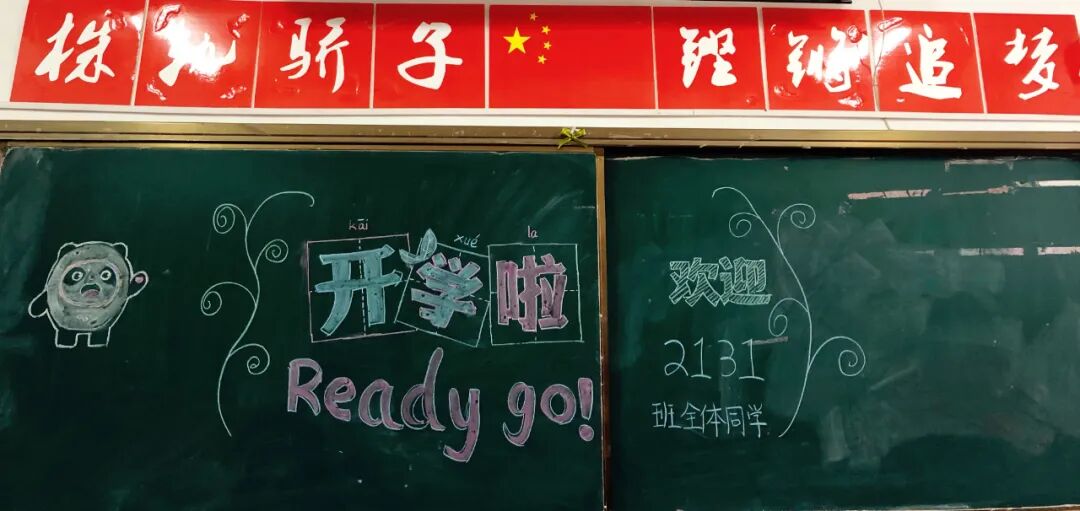 株 骄子 铿锵追梦
kāi xué la
开学啦
Ready go!
欢迎
2131
班全体同学